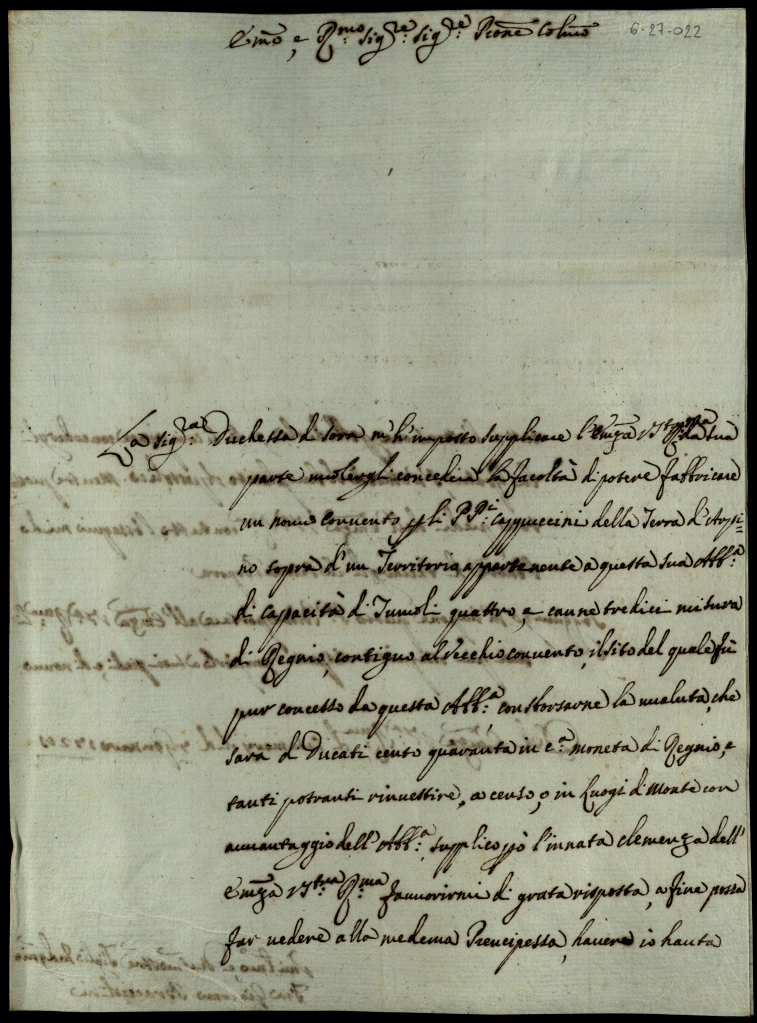 Em̃o, e R.mo Sig.re Sig.re Pr̃one Col.mo
6-27-022
La Sig.ra Duchessa di Sora m'hà imposto supplicare l'Em̃za V.tra R.ma da sua
parte volergli concedere la facoltà di potere fabbricare
un novo convento p̱ li PP.i Cappuccini della Terra d'Arpi=
no sopra d'un Territorio appartenente a questa sua Abb.a
di capacità di Tumoli quattro, e canne tredici misura
di Regnio, contiguo al Vecchio convento, il sito del quale fù
pur concesso da questa Abb.a, con sborsarne la valuta, che
sarà di Ducati cento quaranta in c.a moneta di Regnio, e
tanti potranti rinvestire, a censo, o in Luogi di Monte con
avvantaggio dell'Abb.a, supplico p̱ò l'innata clemenza dell'
Em̃za V.tra R.ma favorirmi di grata risposta, a fine possa
far vedere alla medema Prencipessa, havere io hauta